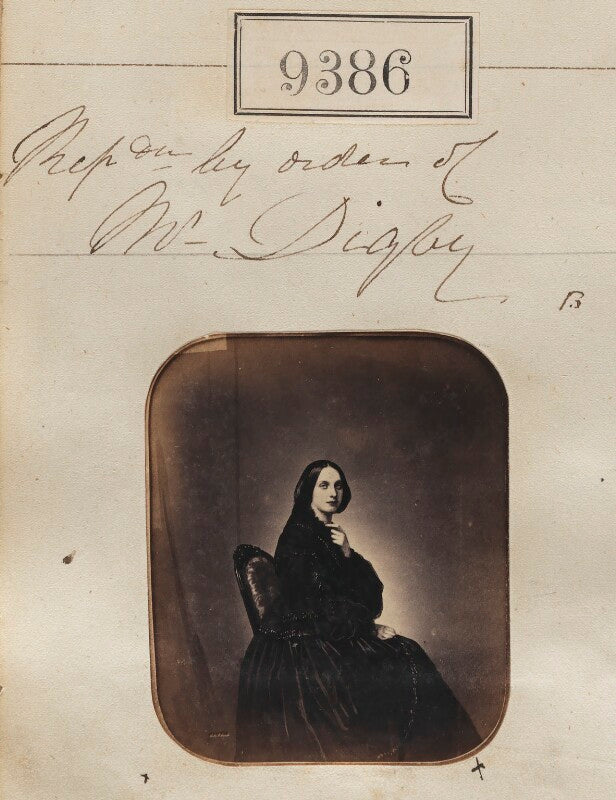 9386
Rep^dn by order of
Mr Digby
B